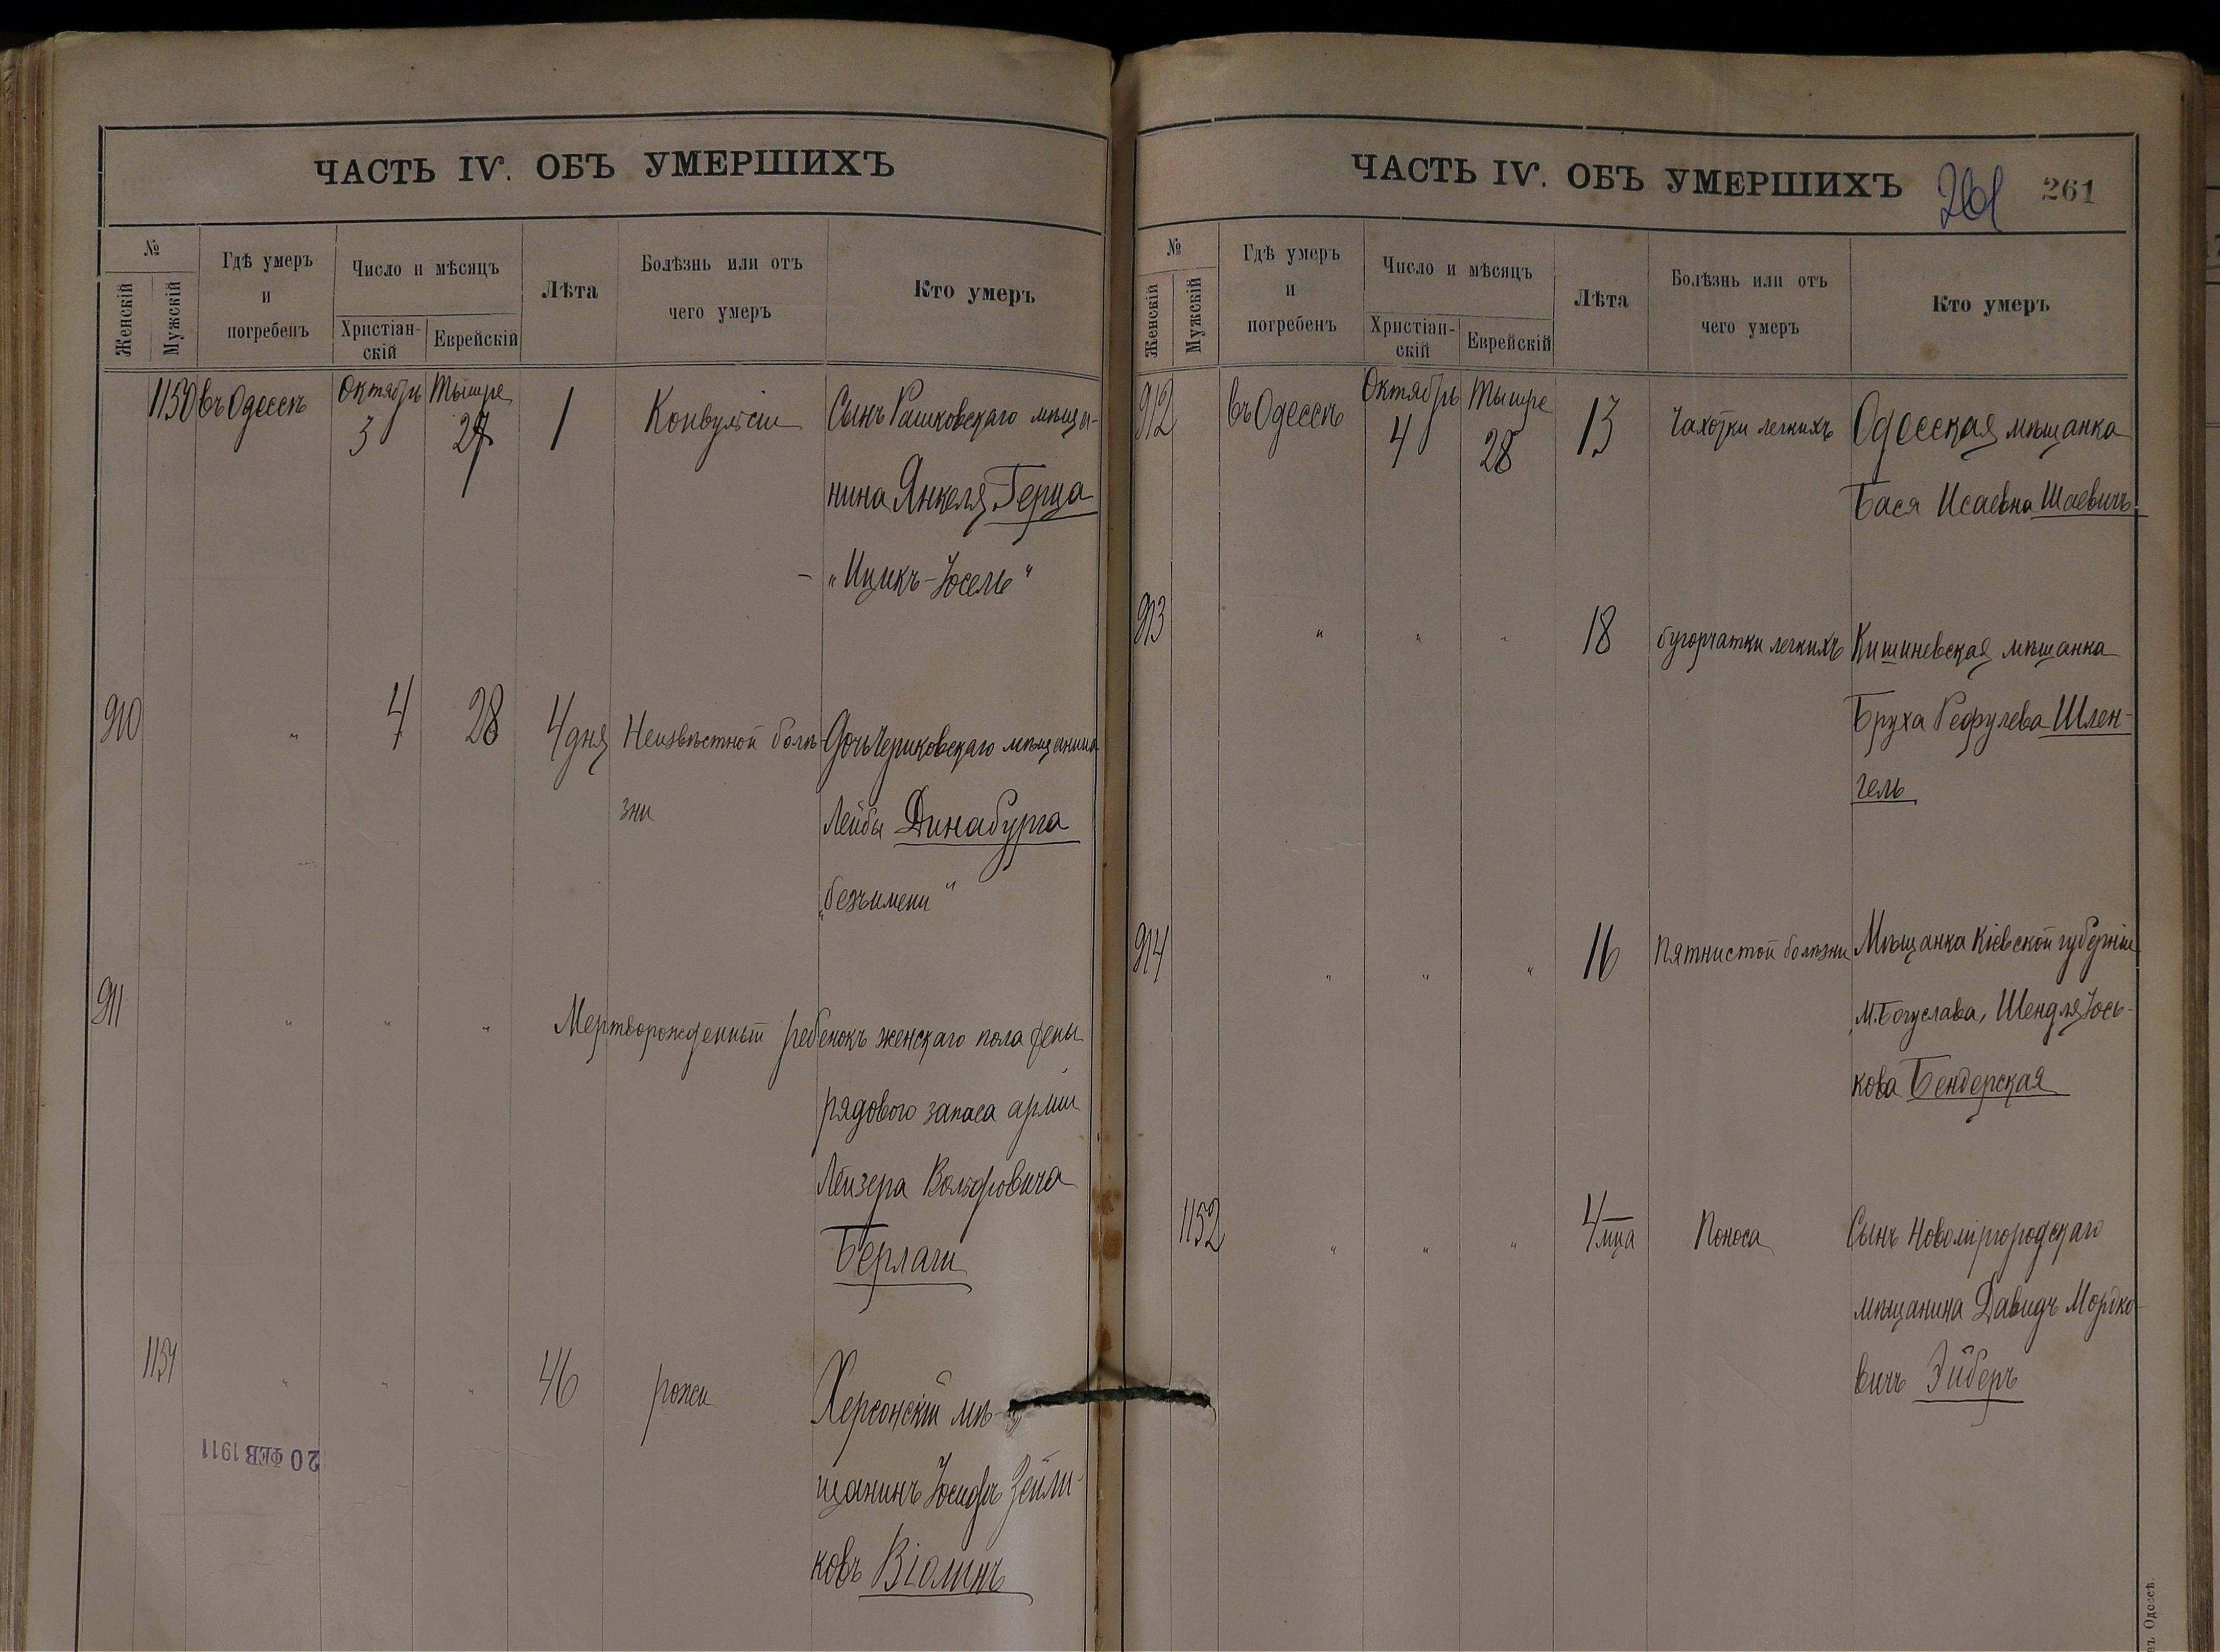 ЧАСТЬ IV. ОБЪ УМЕРШИХЪ
№
Женскій
Мужскій
Гдѣ умеръ
и
погребенъ
Число и мѣсяцъ
Христіан-
скій
Еврейскій
Лѣта
Болѣзнь или отъ
чего умеръ
Кто умеръ
1150 въ Одессѣ Октябрь 3 Тышре 27 1 Конвульсіи Сынъ Рашковскаго мѣща-
нина Янкеля Герца
- „Ицикъ-Іосель“
910 " 4 28 4 дня Неизвѣстной болѣ- Дочь Чериковскаго мѣщанина
зни Лейбы Динабурга
„безъ имени“
911 " " " Мертворожденный ребенокъ женскаго пола
рядового запаса арміи
Лейзера Вольфовича
Берлаги
1151 " " " 46 рожи Херсонскій мѣ-
щанинъ Іосифъ Зейли-
ковъ Віолинъ
20 ФЕВ 1911
ЧАСТЬ IV. ОБЪ УМЕРШИХЪ 261 261
№
Женскій
Мужскій
Гдѣ умеръ
и
погребенъ
Число и мѣсяцъ
Христіан-
скій
Еврейскій
Лѣта
Болѣзнь или отъ
чего умеръ
Кто умеръ
912 въ Одессѣ Октябрь 4 Тышре 28 13 Чахотки легкихъ Одесская мѣщанка
Бася Исаевна Шаевичъ
913 " " " 18 бугорчатки легкихъ Кишиневская мѣщанка
Бруха Рефулева Шлен-
гель
914 " " " 16 Пятнистой болѣзни Мѣщанка Кіевской губерніи
М. Богуслава, Шендля Іось-
кова Бендерская
1152 " " " 4 мца Поноса Сынъ Новоміргородскаго
мѣщанина Давидъ Мордко-
вичъ Эйберъ
въ Одессѣ.